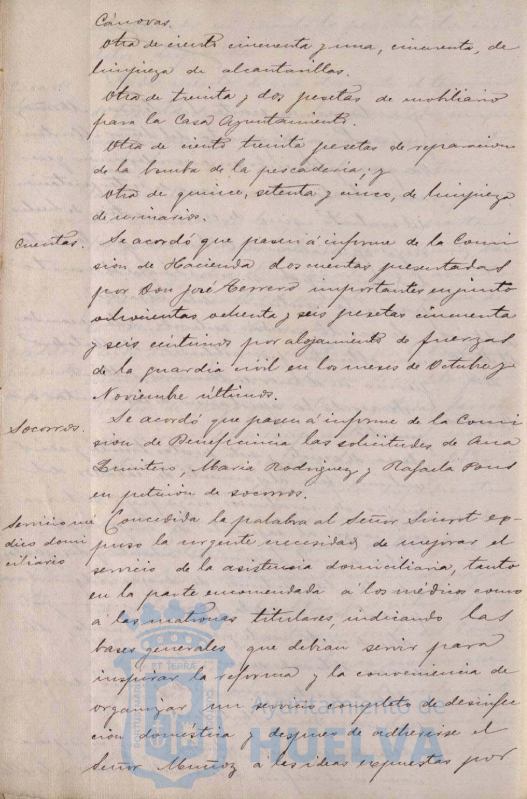 Cánovas.
Otra de ciento cincuenta y una, cincuenta, de
limpieza de alcantarillas.
Otra de treinta y dos pesetas de mobiliario
para la Casa Ayuntamiento.
Otra de ciento treinta pesetas de reparacion
de la bomba de la pescadería, y
Otra de quince, setenta y cinco, de limpieza
de urinarios.
Cuentas. Se acordó que pasen á informe de la Comi
sion de Hacienda dos cuentas presentadas
por Don José Herrero importantes en junto
ochocientas ochenta y seis pesetas cincuenta
y seis céntimos por alojamiento de fuerzas
de la guardia civil en los meses de Octubre y
Noviembre últimos.
Socorros. Se acordó que pasen á informe de la Comi
sion de Beneficencia las solicitudes de Ana
Quintero, María Rodriguez y Rafaela Pons
en peticion de socorros.
Servicio mé
dico domi
ciliario
Concedida la palabra al Señor Siurot ex-
puso la urgente necesidad de mejorar el
servicio de la asistencia domiciliaria, tanto
en la parte encomendada a los médicos como
á las matronas titulares, indicando las
bases generales que debian servir para
inspirar la reforma y la conveniencia de
organizar un servicio completo de desinfec
cion doméstica y despues de adherirse el
Señor Muñoz á las ideas expuestas por
Ayuntamiento de
HUELVA